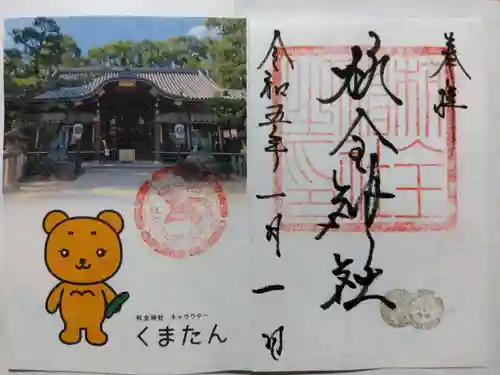 奉拝
杭全神社
令和五年一月一日
杭全神社 キャラクター
くまたん